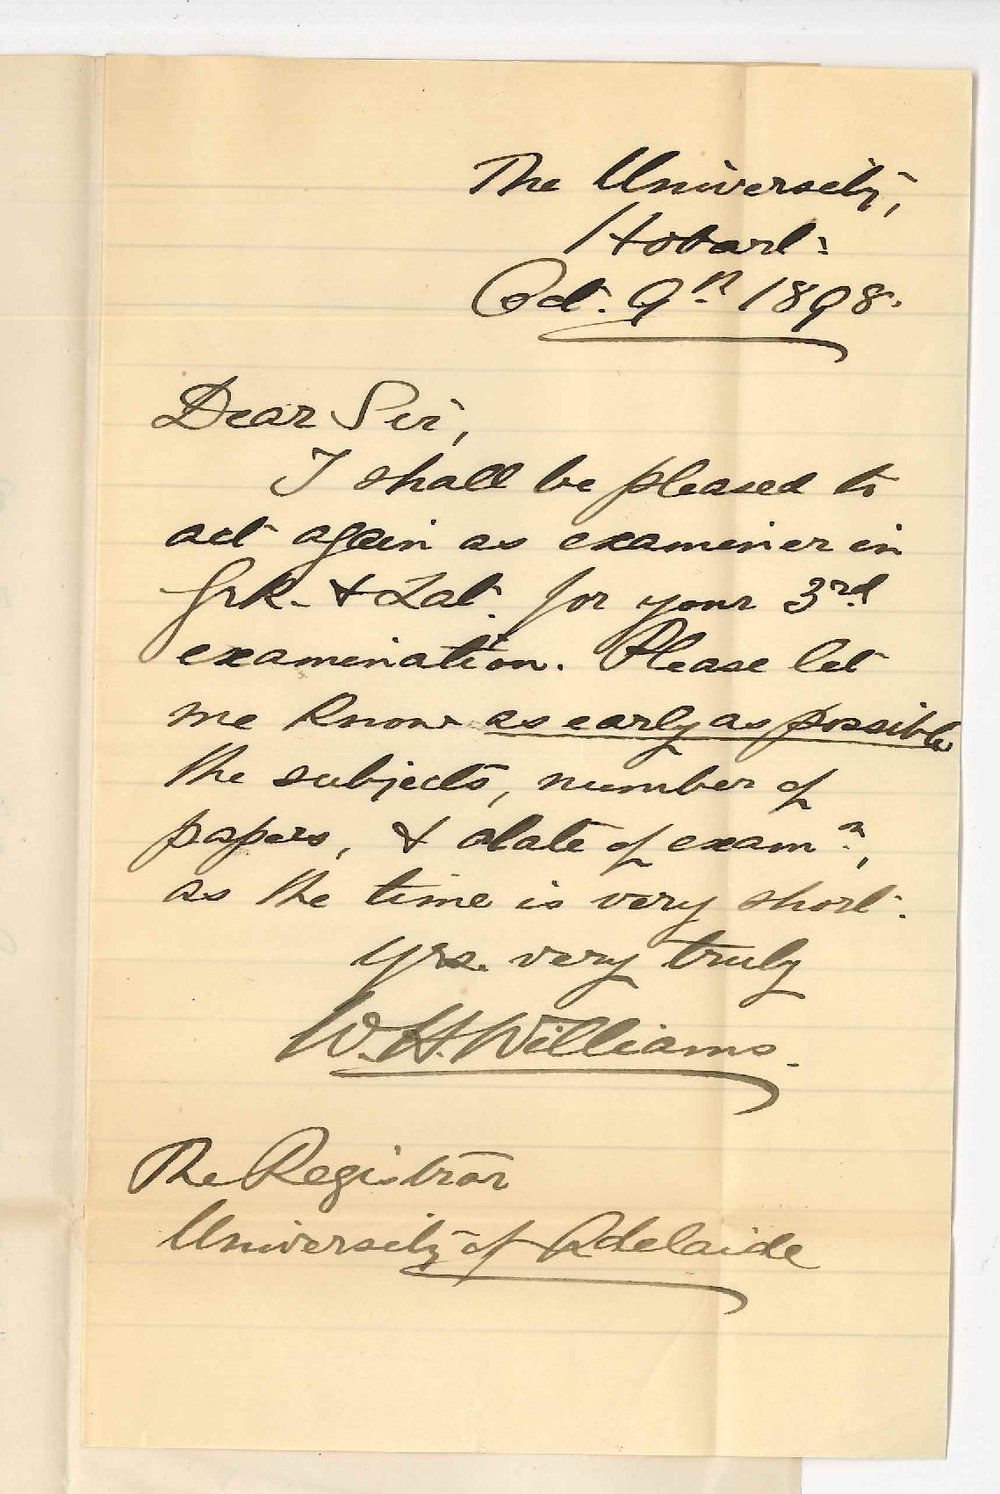 The University,
Hobart.
Oct. 9th 1898.
Dear Sir,
I shall be pleased to
act again as examiner in
Grk. & Lat. for your 3rd
examination. Please let
me know as early as possible
the subjects, number of
papers, & date of examn,
as the time is very short.
Yrs. very truly
W. H. Williams.
The Registrar
University of Adelaide